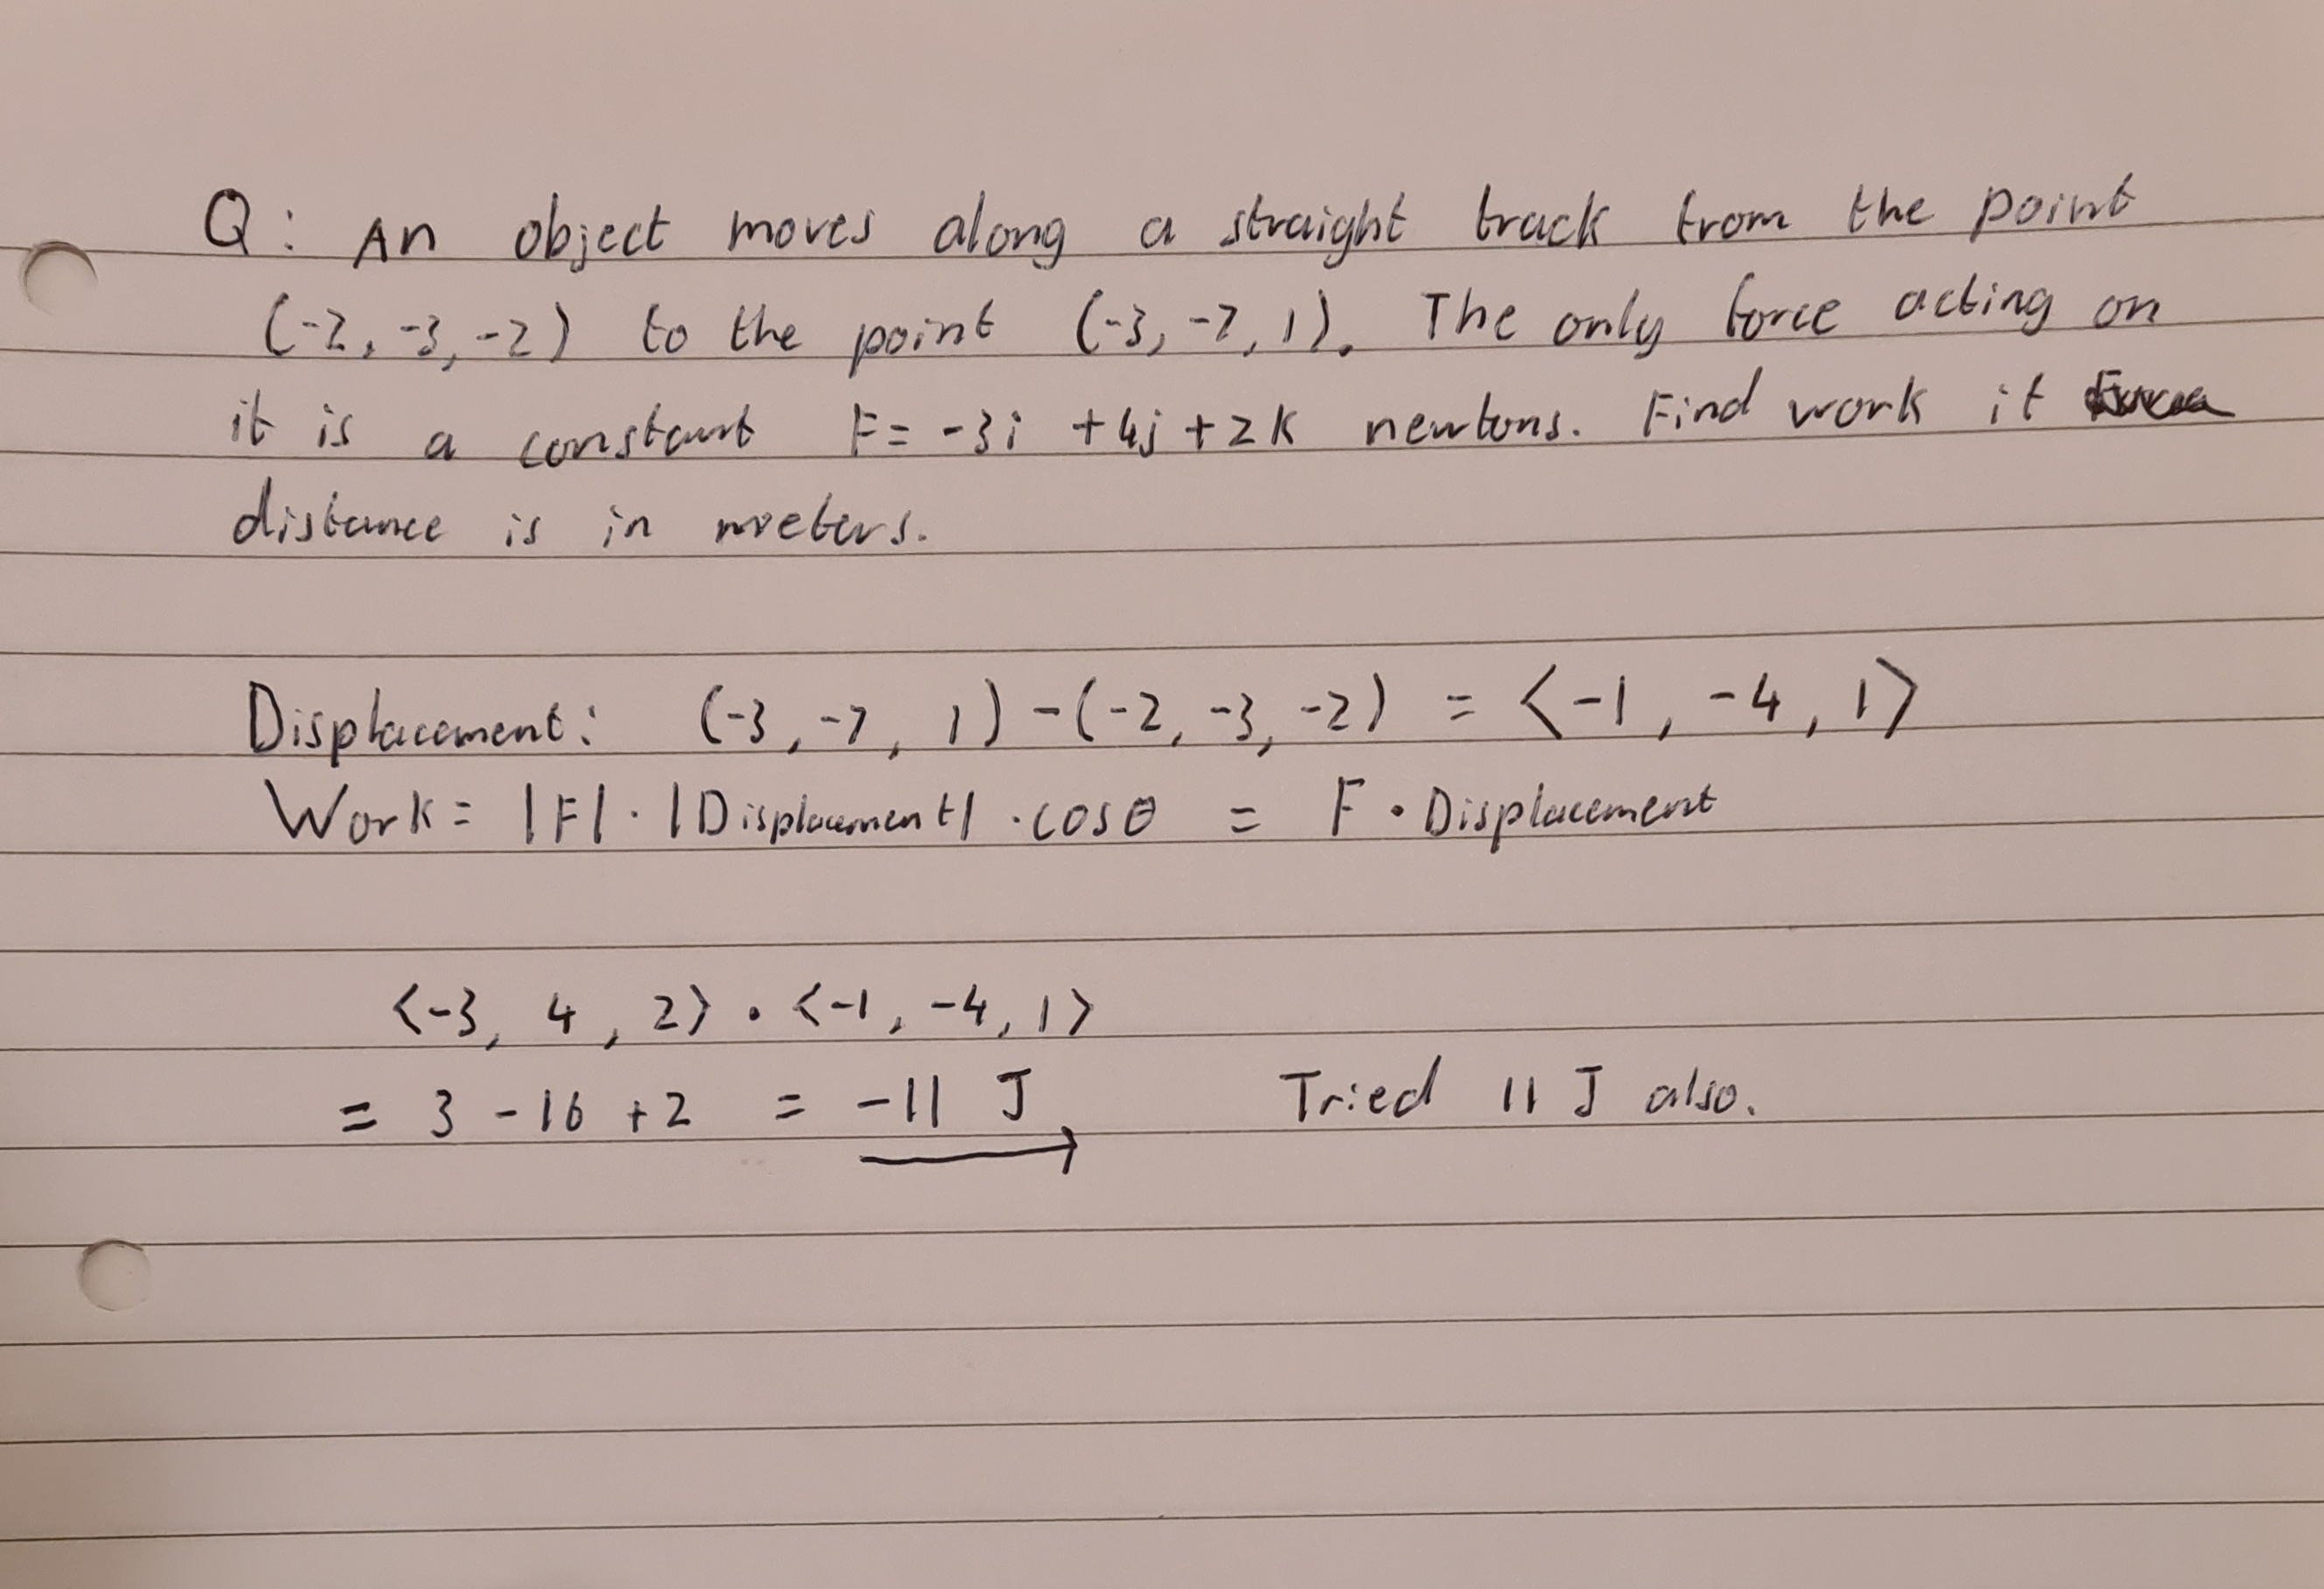 Q: An object moves along a straight track from the point
(-2, -3, -2) to the point (-3, -7, 1). The only force acting on
it is a constant F= -3i +4j +2k newtons. Find work if
distance is in meters.
Displacement: (-3, -7, 1) - (-2, -3, -2) = <-1, -4, 1>
Work= |F| · |Displacement| · cosθ = F · Displacement
<-3, 4, 2> · <-1, -4, 1>
= 3 - 16 + 2 = -11 J Tried 11 J also.